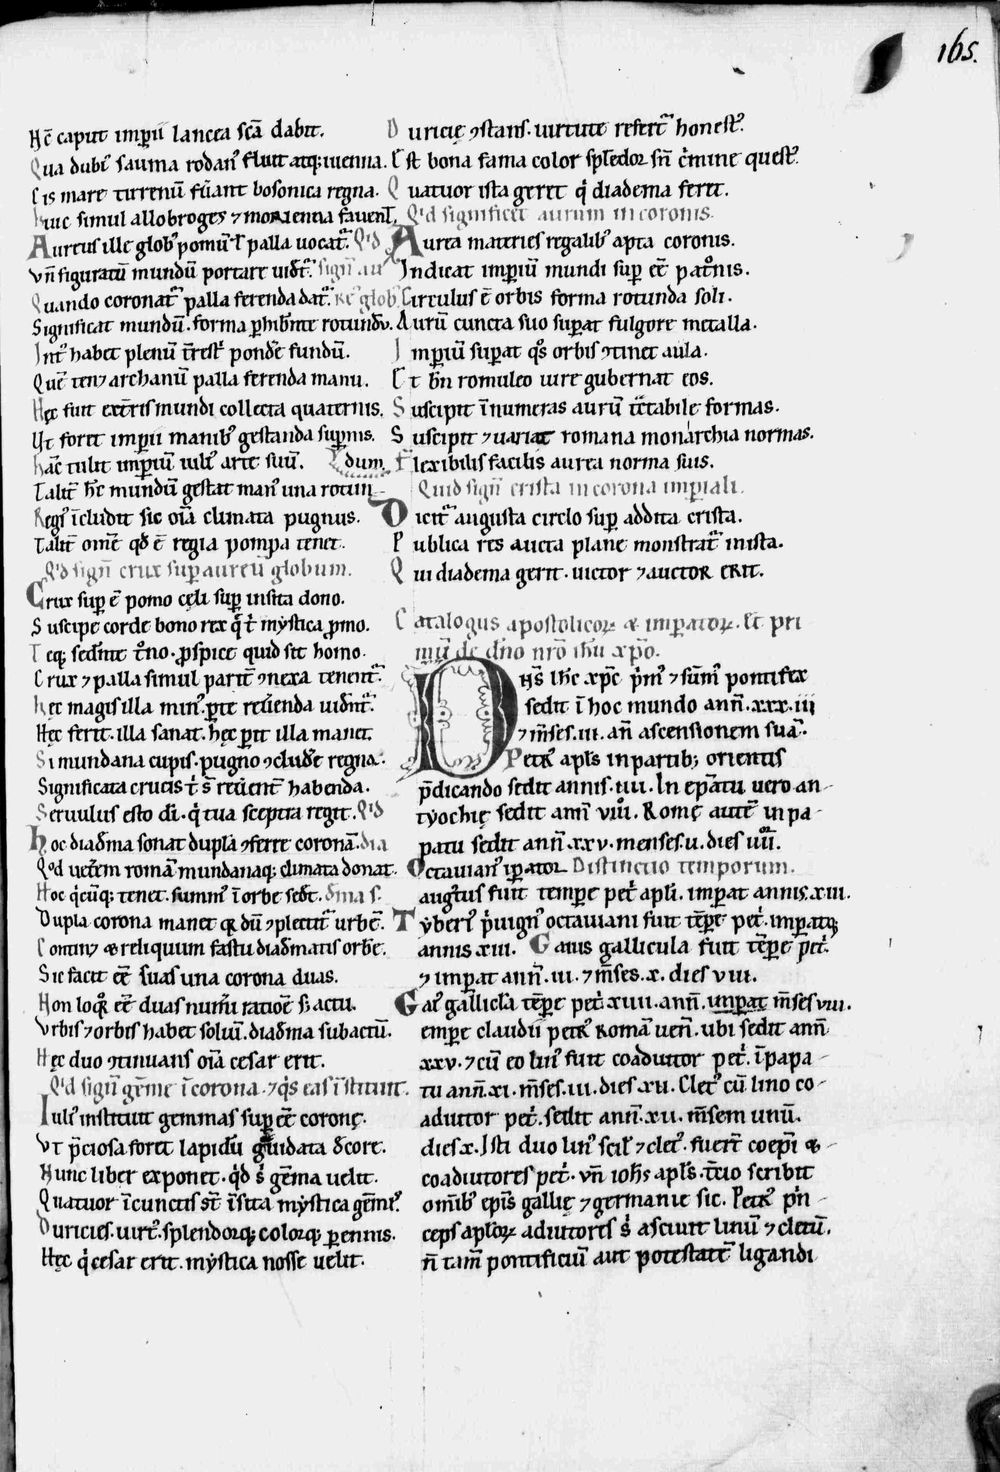 165.
Hēc caput imp̄ii lancea sc̄a dabit.
Qua dubiꝰ sauma rodanꝰ fluit atq; iuenna.
Cis mare tirrenū fūant bosonica regna.
huic simul allobroges ⁊ morientia fauent.
Aureus ille globꝰ pomū ł palla uocat᷑. Q'd
vn̄ figuratū mundū portare uidt᷑. sign̄ au
Quando coronat᷑ palla ferenda dat᷑. Reḡ globꝰ
Significat mundū. forma p̄hibente rotundū.
Intꝰ habet plenū t̄restꝰ pondē fundū.
Quē tenꝫ archanū palla ferenda manu.
Hęc fuit ext̄ris mundi collecta quaternis.
Ut foret imp̄ii manibꝰ gestanda sup̄nis.
hac tulit imp̄iū iuliꝰ arte suū. dum
Talit̄ hc̄ mundū gestat manꝰ una rotun
Regꝭ īcludit sic oīa climata pugnus.
Talit̄ om̄e qd̄ ē regia pompa tenet.
Q'd sign̄ crux sup̄ aureū globum.
Crux sup̄ ē pomo cęli sup̄ insita dono.
Suscipe corde bono rex q̄ t̄ mystica p̄mo.
Teq; sedente t̄no. p̄spice quid sit homo.
Crux ⁊ palla simul parit̄ ꝯnexa tenent᷑.
hęc magis illa minꝰ. p̄te reūenda uident᷑.
Hęc ferit. illa sanat. hęc p̄it illa manet.
Si mundana cupis. pugno ꝯcludē regna.
Significata crucis t̄ s̄ reūent̄ habenda.
Seruulus esto dī. q̇ tua sceptra regit. Q'd
Hoc diadm̄a sonat dupla ꝯferre coronā. dia
Qd' uet̄em romā mundanaq; climata donat.
Hoc q̇cūq; tenet. summꝰ ī orbe sedet. dm̄a s.
Dupla corona manet q̄ dū ꝯplectit᷑ urbē.
Continꝫ & reliquum fastu diadm̄atis orbē.
Sic facit eē̄ suas una corona duas.
Non loqꝛ eē̄ duas num̄i ratioē s; actu.
Vrbis ⁊ orbis habet soliū. diadm̄a subactū.
Hęc duo ꝯtinuans oīa cesar erit.
Q'd sign̄ gēme ī corona. ⁊ q̇s eas īstituit.
Iuliꝰ instituit gemmas sup̄ eē̄ coronę.
Vt p̄ciosa foret lapidū grauidata dcore.
Hunc liber exponet. q'd s; gēma uelit.
Quatuor ī cunctis st̄ īsita mystica gēmꝭ.
Duricies. uirtꝰ. splendorq; colorq; p̄ennis.
Hęc q̇ cesar erit. mystica nosse uelit.
Duricię ꝯstans. uirtute refert᷑ honestꝰ.
Est bona fama color splēdor sn̄ c̄mine questꝰ.
Quatuor ista geret q̇ diadema feret.
Q'd significet aurum in coronis.
Aurea materies regalibꝰ apta coronis.
Indicat imp̄iū mundi sup̄ eē̄ pat̊nis.
Circulus ē orbis forma rotunda soli.
Aurū cuncta suo sup̄at fulgore metalla.
Imp̄iū sup̄at q̊s orbis ꝯtinet aula.
Et bn̄ romuleo iure gubernat eos.
Suscipit īnumeras aurū tctabile formas.
Suscipit ⁊ uariat romana monarchia normas.
Flexibilis facilis aurea norma suis.
Quid sign̄ crista in corona imp̄iali.
Dicit᷑ augusta circlo sup̄ addita crista.
Publica res aucta plane monstrat᷑ in ista.
Qui diadema gerit. uictor ⁊ auctor erit.
Catalogus apostolicoꝝ & imperatoꝝ. Et pri
mū de dn̄o nr̄o ih̄u xp̄o.
Dn̄s ih̄c xp̄c p̄mꝰ ⁊ sūmꝰ pontifex
sedit ī hoc mundo ann̄. xxx.iii
⁊ m̄ses. iii. an̄ ascensionem suā.
Petrꝰ apl̄s in partib; orientis
p̄dicando sedit annis. iiii. In ep̄atu uero an-
tyochię sedit ann̄ viii. Romę autē in pa-
patu sedit ann̄ xxv. menses. u. dies uiii.
Octauianꝰ īp̄ator Distinctio temporum.
augꝰtus fuit tempe pet̄ apl̄i. imperat annis. xiii.
Tyberiꝰ p̄uignꝰ octauiani fuit tēpe pet̄. imperatq;
annis xiii. Gaius gallicula fuit tēpe pet̄.
⁊ imperat ann̄. iii. ⁊ m̄ses. x. dies viii.
Gaiꝰ gallicla tēpe pet̄ xiiii. ann̄. imperat m̄ses viii.
empe claudii petrꝰ Romā uen̄. ubi sedit ann̄
xxv. ⁊ cū eo linꝰ fuit coadiutor pet̄. ī papa-
tu ann̄. xi. m̄ses. iii. dies xii. Cletꝰ cū lino co-
adiutor pet̄. sedit ann̄. xii. m̄sem unū.
dies x. Isti duo linꝰ scil ⁊ cletꝰ. fuert̄ coep̄i &
coadiutores pet̄. vn̄ ioh̄s apl̄s. t̄cio scribit
om̄ibꝰ ep̄is gallię ⁊ germanie sic. Petrꝰ p̄n-
ceps apl̄oꝝ adiutores s; asciuit linū ⁊ cletū.
n̄ tam̄ pontificiū aut potestatē ligandi